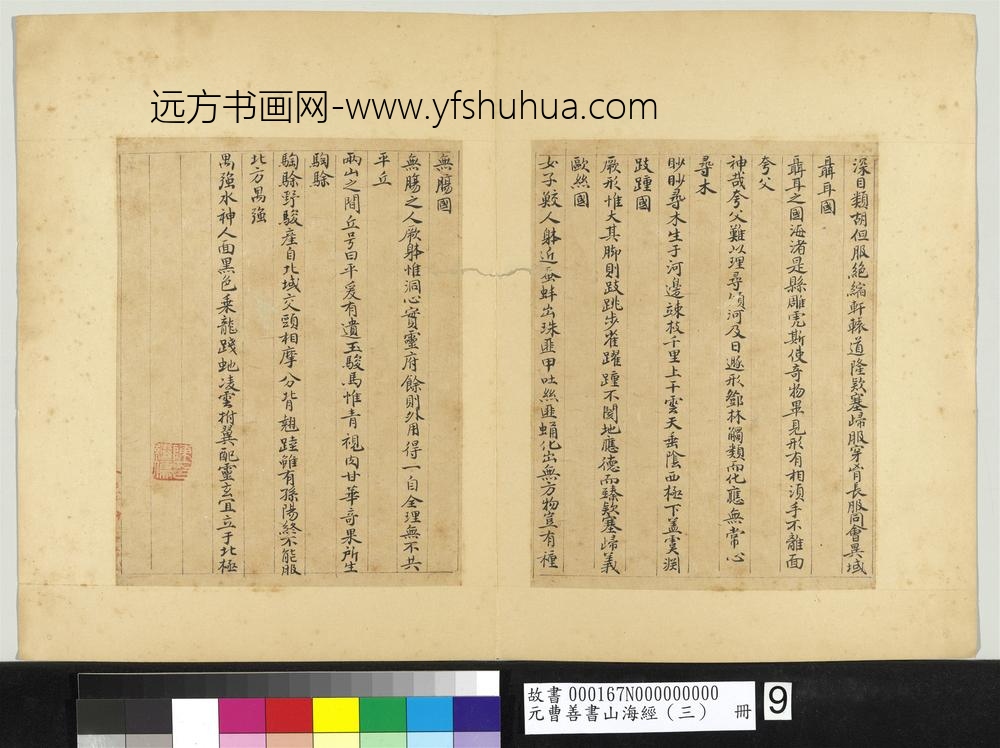 远方书画网-www.yfshuhua.com
深目類胡但服絕縮軒轅道隆欵塞歸服穿胷長服同會異域
聶耳國
聶耳之國海渚是縣雕虎斯使奇物畢見形有相須手不離面
夸父
神哉夸父難以理尋傾河及日遯形鄧林觸類而化應無常心
尋木
眇眇尋木生于河邊竦枝千里上干雲天垂陰西極下蓋虞淵
跂踵國
厥形惟大其脚則跂跳步雀躍踵不閡地應德而臻欵塞歸義
歐絲國
女子鮫人躰近蚕蚌出珠匪甲吐絲匪蛹化出無方物豈有種
無膓國
無膓之人厥躰惟洞心實靈府餘則外用得一自全理無不共
平丘
兩山之間丘号曰平爰有遺玉駿馬惟青視肉甘華奇果所生
騊駼
騊駼野駿產自北域交頭相摩分背翹踛雖有孫陽終不能服
北方禺強
禺強水神人面黑色乗龍踐虵凌雲拊翼配靈玄冥立于北極
故書 000167N000000000
元曹善書山海經（三） 冊
9